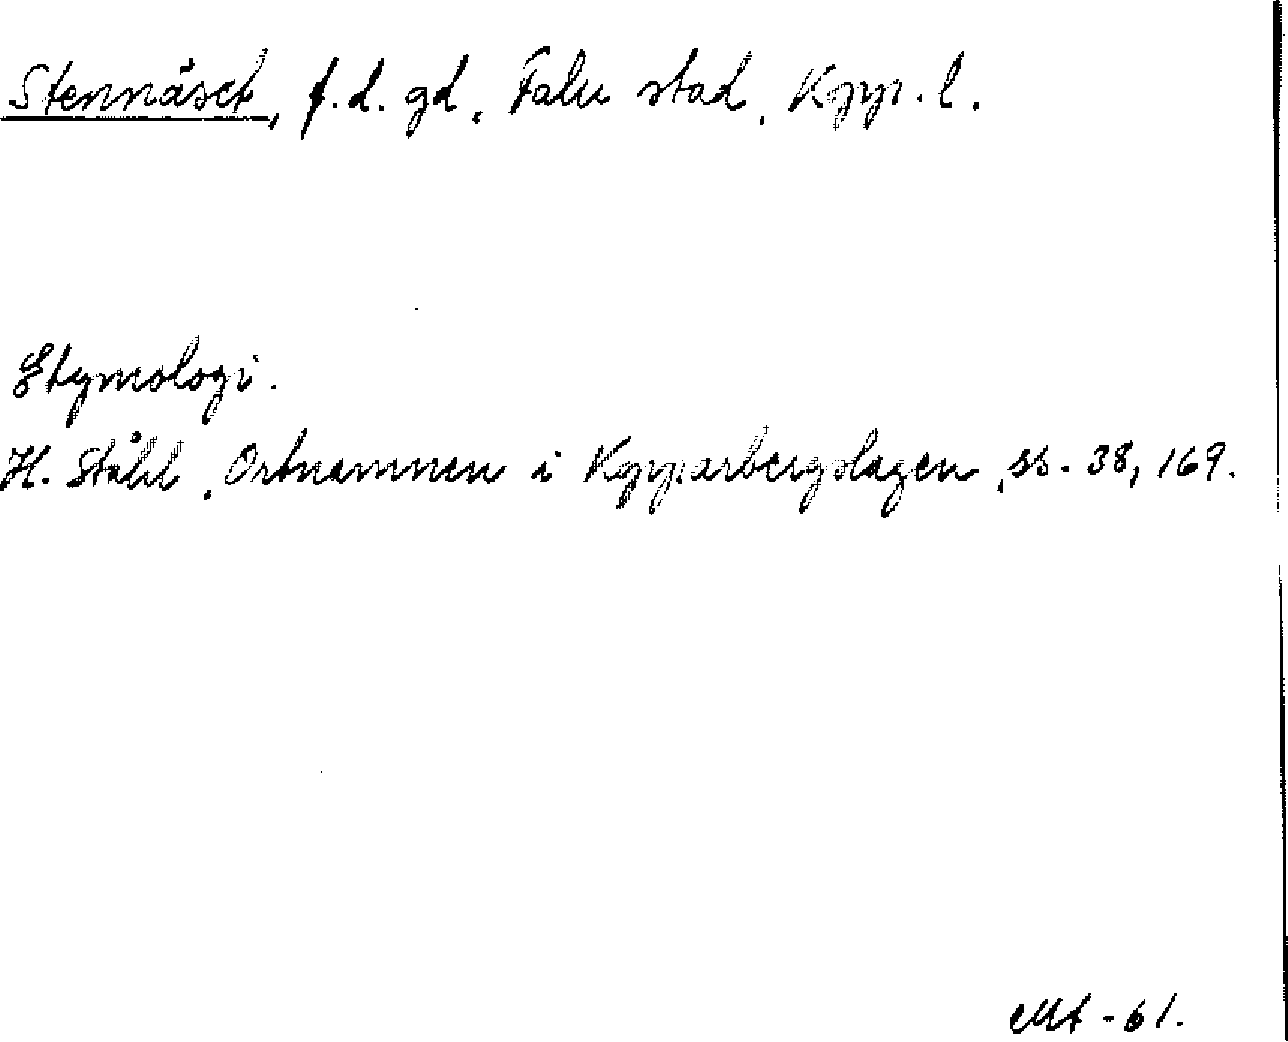 Stennäset, f.d. gd, Falu stad, Kpp. l.
Etymologi.
H. Ståhl, Ortnamnen i Kopparbergslagen, ss. 38, 169.
Mt - 61.